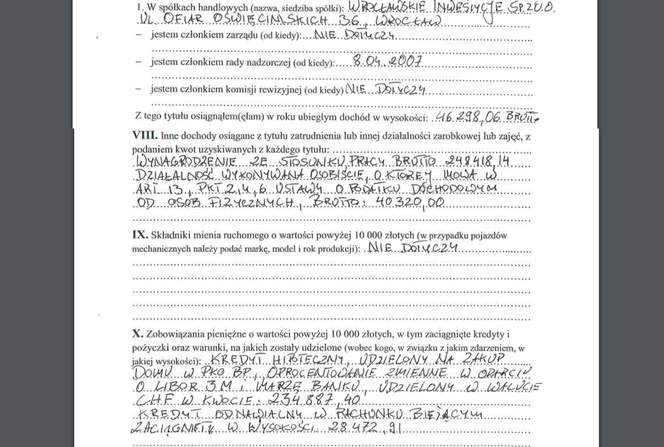 1. W spółkach handlowych (nazwa, siedziba spółki): WROCŁAWSKIE INWESTYCJE SP. Z O.O.
UL. OFIAR OŚWIĘCIMSKICH 36, WROCŁAW
– jestem członkiem zarządu (od kiedy): NIE DOTYCZY
– jestem członkiem rady nadzorczej (od kiedy) 8.04.2007
– jestem członkiem komisji rewizyjnej (od kiedy) NIE DOTYCZY
Z tego tytułu osiągnąłem(ęłam) w roku ubiegłym dochód w wysokości: 46.298,06 BRUTTO
VIII. Inne dochody osiągane z tytułu zatrudnienia lub innej działalności zarobkowej lub zajęć, z
podaniem kwot uzyskiwanych z każdego tytułu:
WYNAGRODZENIE ZE STOSUNKU PRACY BRUTTO 248418,14
DZIAŁALNOŚĆ WYKONYWANA OSOBIŚCIE, O KTÓREJ MOWA W
ART 13, PKT 2,4,6 USTAWY O PODATKU DOCHODOWYM
OD OSÓB FIZYCZNYCH, BRUTTO: 40320,00
IX. Składniki mienia ruchomego o wartości powyżej 10 000 złotych (w przypadku pojazdów
mechanicznych należy podać markę, model i rok produkcji): NIE DOTYCZY
X. Zobowiązania pieniężne o wartości powyżej 10 000 złotych, w tym zaciągnięte kredyty i
pożyczki oraz warunki, na jakich zostały udzielone (wobec kogo, w związku z jakim zdarzeniem, w
jakiej wysokości): KREDYT HIPOTECZNY, UDZIELONY NA ZAKUP
DOMU W PKO BP, OPROCENTOWANIE ZMIENNE W OPARCIU
O LIBOR 3M I MARŻĘ BANKU, UDZIELONY W WALUCIE
CHF W KWOCIE: 234.887,40
KREDYT ODNAWIALNY W RACHUNKU BIEŻĄCYM
ZACIĄGNIĘTY W WYSOKOŚCI: 28.472,91